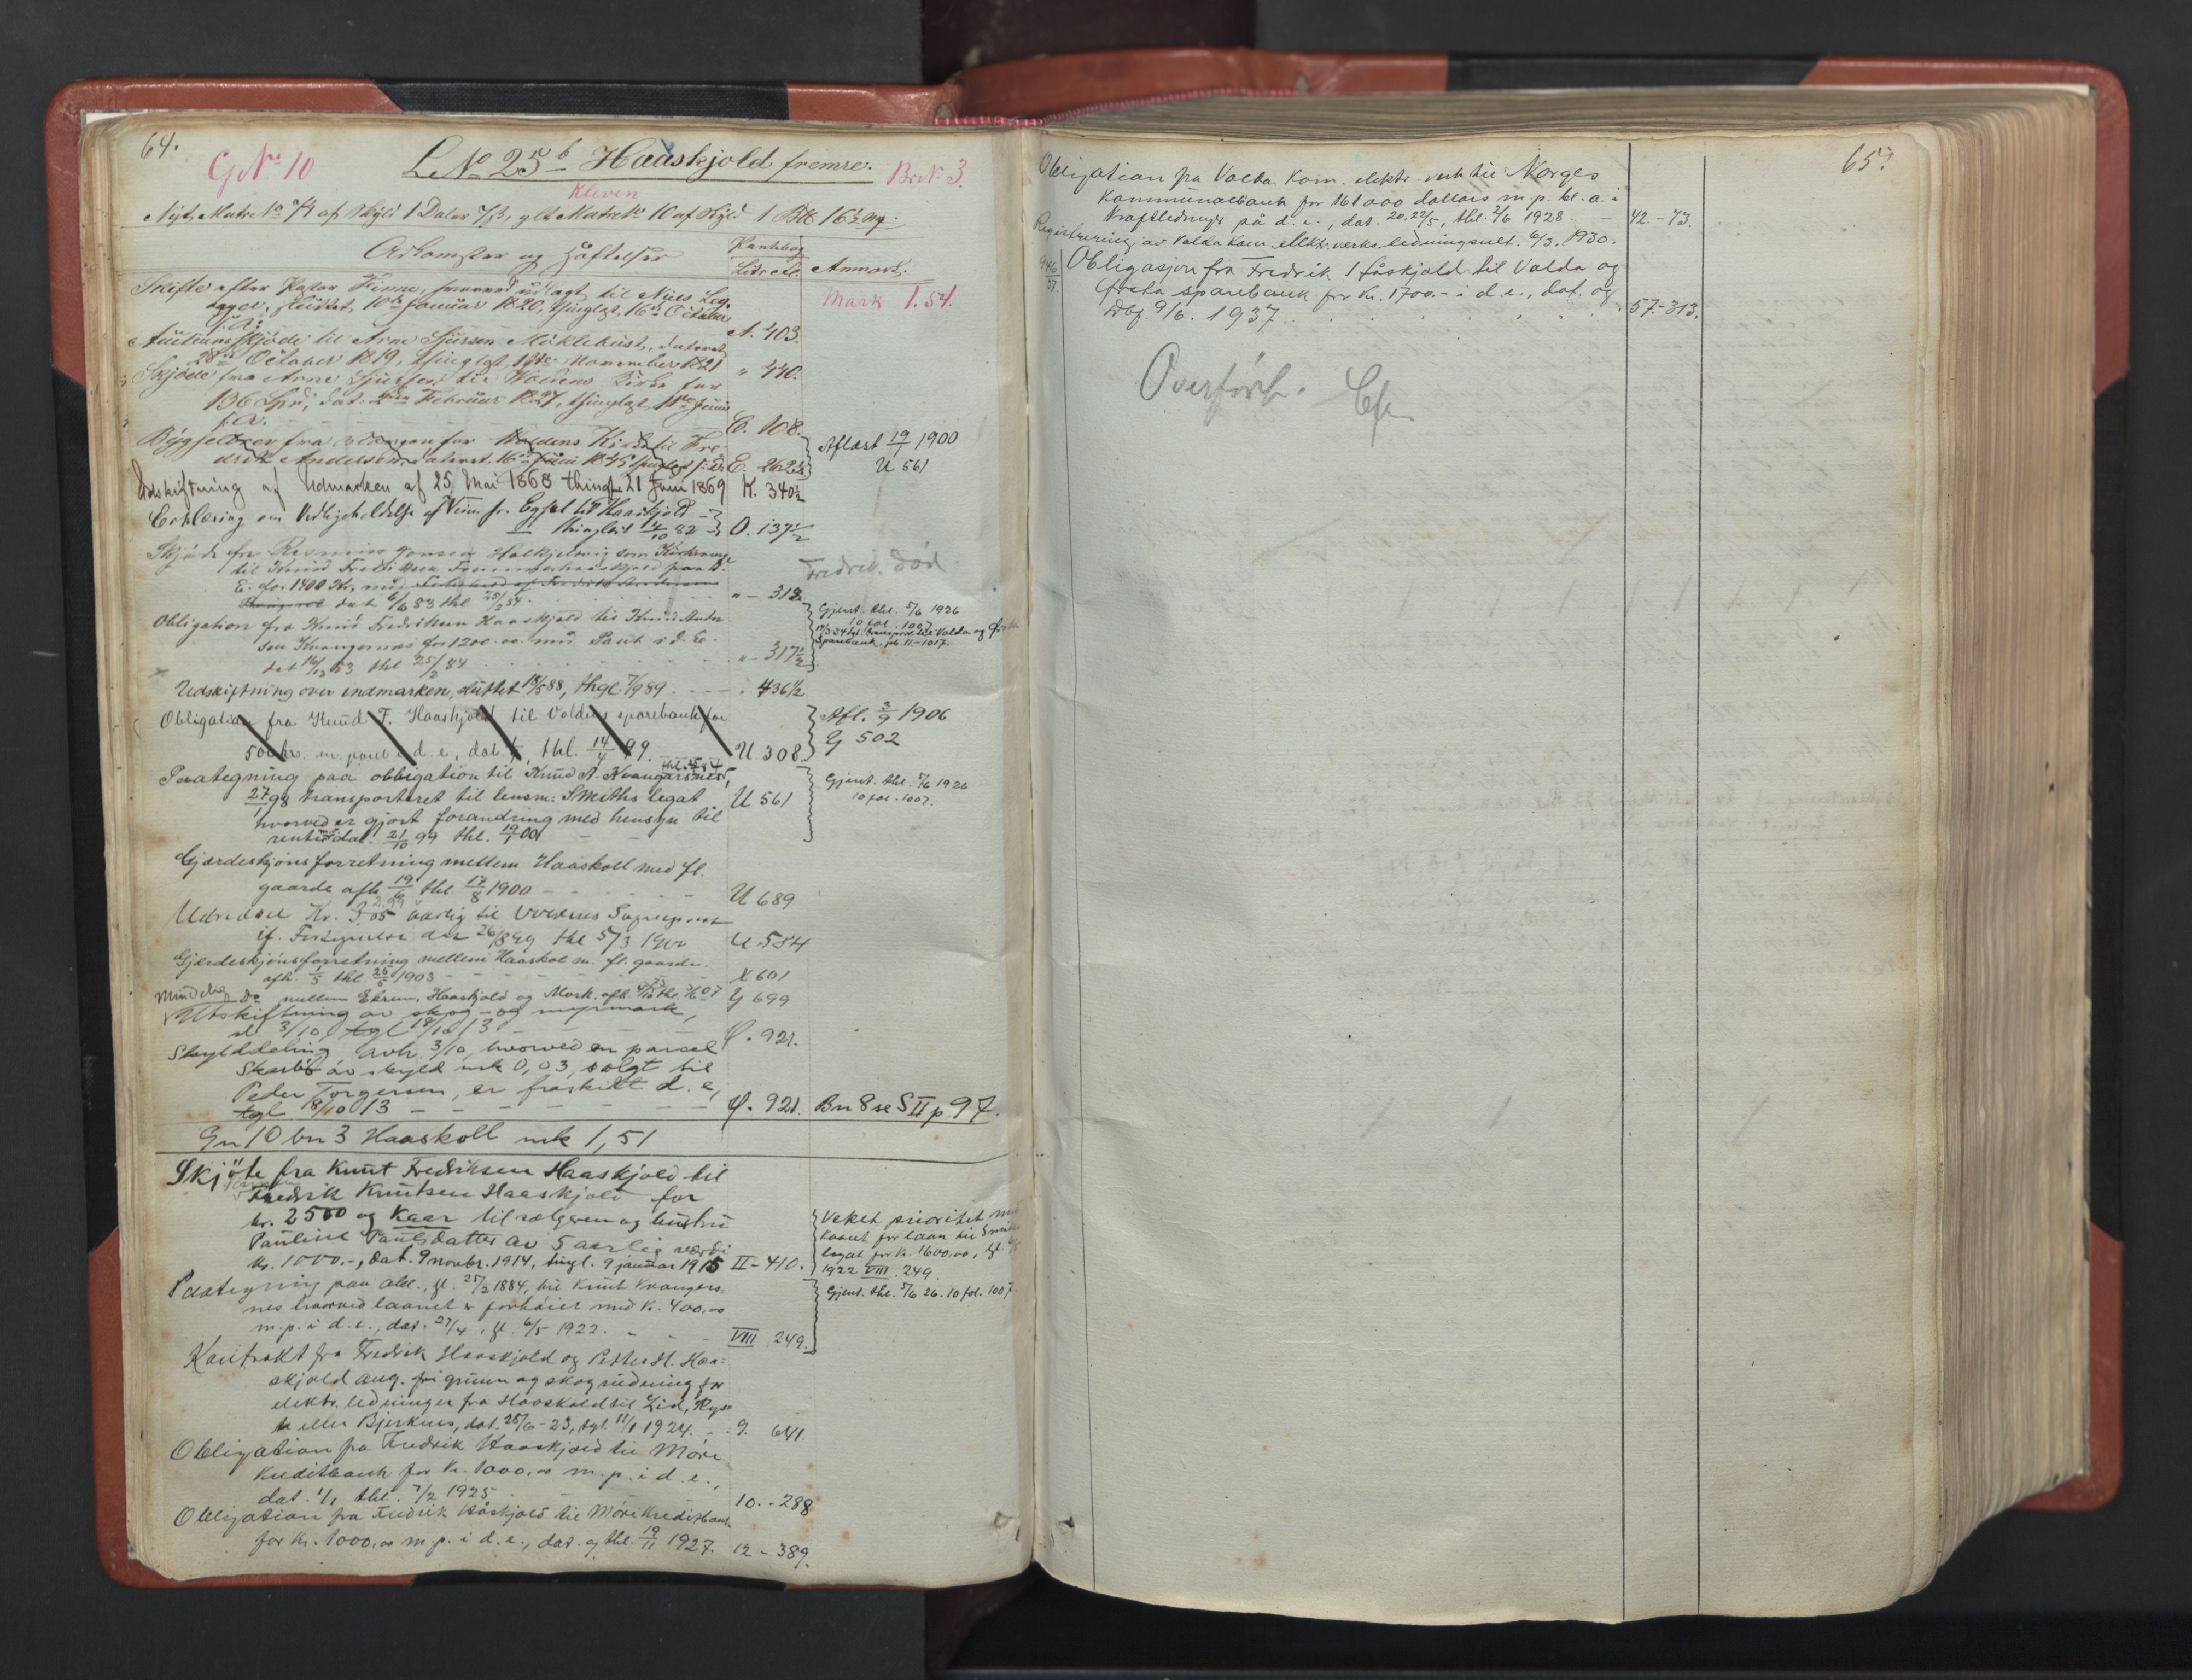 64.
G. No 10
L No 25 b Haaskjold fremre.
Br. N. 3.
Kleven
Nyt Matr No 74 af Skyld 1 Daler
Matr No 10 af Skyld 1
Adkomster og Hæftelser
Pantebog
Litr
Anmærk.
Mark 1.54.
Skifte efter
10de Januar 1820, thinglyst 16de October
A. 403.
Auctions Skjøde til Arne Sjursen Möklebust, dateret
28de October 1819, thinglyst November 1821
" 440.
Skjøde fra Arne Sjursen til Woldens Kirke for
136 Spd, dat. Februar 1827, thinglyst 11te Juni
s.A.
C. 108.
Bygselbrev fra for Woldens Kirke til Fre-
drik Andersen, dateret 16de Juni 1845
E. 262½
Aflæst 19/1 1900
U 561
Udskiftning af Udmarken af 25 Mai 1868 thingl. 21 Juni 1869
K. 340½
Erklæring om Vedligeholdelse af Veien fr. Egset til Haaskjold
thinglæst 4/10 82
O. 137½
Skjøde fra Rasmus Jonsen som
til Knud Fredriksen
E. for 1400 Kr, med
dat 6/6 83 thl 25/2 84
" - 318
Fredrik død
Obligation fra Knud Fredriksen Haaskjold til Knud Ander
sen Kvangersnes for 1200.00 med Pant i d. E.
83 thl 25/2 84
" - 317½
Gjent. thl. 5/6 1926
10 fol. 1007
transport til Volda og Ørsta
Sparebank, fol. 11.-1017.
Udskiftning over indmarken, sluttet 18/5 88, thgl 7/9 89.
436½
Obligation fra Knud F. Haaskjold til Voldens sparebank for
500 kr. m. pant i d. e., dat. thl. 14/4 99.
U 308.
Afl. 3/9 1906
Y 502
Paategning paa obligation til Knud A. Kvangersnes,
27/1 98 transporteret til lensm. Smiths legat
U 561
hvorved er gjort forandring med hensyn til
renten dat. 21/10 99 thl. 19/1 00
Gjent. thl. 5/6 1926
10 fol. 1007.
Gjærdeskjönsforretning mellem Haaskoll med fl.
gaarde afh. 19/6 thl. 17/8 1900
U 689
Udredsel Kr. aarlig til Voldens Sogneprest
if. dat 26/8 99 thl 5/3 1900
U 584
Gjærdeskjönsforretning mellem Haaskol m. fl. gaarde.
afh. 1/5 thl. 26/5 1903
X 601
Mindelig Do mellem Ekrem, Haaskjold og Mork. afh.
Y 699
Utskiftning av skog- og myrmark,
sl 3/10, tgl 18/10 13
φ. 921.
Skylddeling, avh. 3/10, hvorved en parcel
Skarbö av skyld mk 0,03, solgt til
Peder Torgersen, er fraskilt d. e,
tgl 18/10 13
φ. 921.
Bn 8 se S II p 97.
Gn 10 bn 3 Haaskoll mk 1,51
Skjöte fra Knut Fredriksen Haaskjold til
Fredrik Knutsen Haaskjold for
kr. 2500 og Kaar til sælgeren og hustru
Pauline Paulsdatter av 5 aarlig værdi
kr. 1000.-, dat. 9 novbr. 1914, tingl. 9 januar 1915
II - 410.
Veket prioritet
kaaret for laan til Smiths
legat for kr. 1600,00, tgl.
1922 VIII. 249.
Paategning paa obl., gl. 25/2 1884, til Knut Kvangers-
nes hvorved laanet er forhöiet med kr. 400,00
m.p. i d. e., dat. 27/4, gl. 6/5 1922.
VIII 249.
Gjent. thl. 5/6 26. 10 fol. 1007
Kontrakt fra Fredrik Haaskjold og Petter H. Haa-
skjold ang. fri grunn og skogrydning for
elektr. ledninger fra Haaskold til Lid,
eller Bjerknes, dat. 25/6 - 23, tgl. 11/1 1924.
9. 641.
Obligation fra Fredrik Haaskjold til Möre
Kreditbank for kr. 1000,00 m. p. i d. e.,
dat. 1/1 thl. 7/2 1925
10. - 288
Obligation fra Fredrik Håskjold til Möre Kreditbank
for kr. 1000,00 m. p. i d. e., dat. og thl. 19/11 1927.
12 - 389.
65.
Obligation fra Volda kom. elektr. verk til Norges
Kommunalbank for 161000 dollars m. p. bl. a. i
kraftledninger på d. e., dat. 20, 22/5, thl. 2/6 1928.
42. - 73.
Registrering av Volda kom. elektr. verks ledningsnett. 6/3, 1930.
946/37
Obligasjon fra Fredrik Håskjold til Volda og
Ørsta sparebank for kr. 1700.- i d. e., dat. og
Dbf. 9/6. 1937
57. - 313.
Overført.